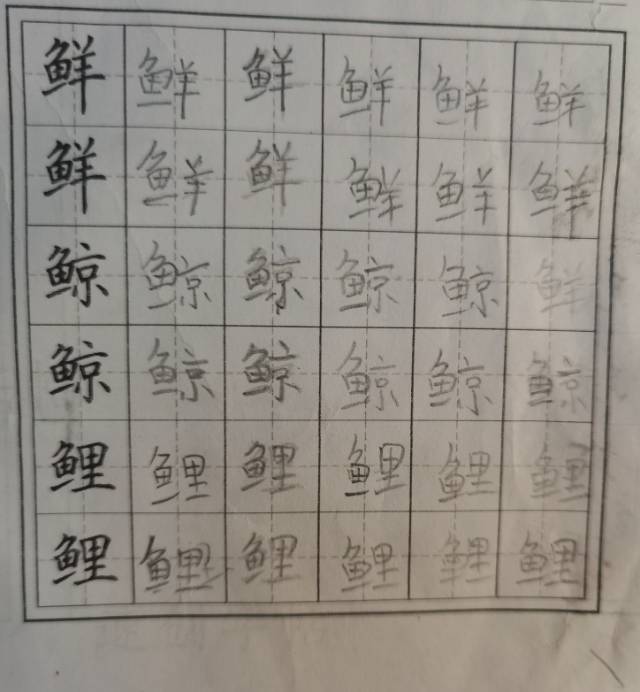 鲜鲜鲜鲜鲜鲜
鲜鲜鲜鲜鲜鲜
鲸鲸鲸鲸鲸鲜
鲸鲸鲸鲸鲸鲸
鲤鲤鲤鲤鲤鲤
鲤鲤鲤鲤鲤鲤